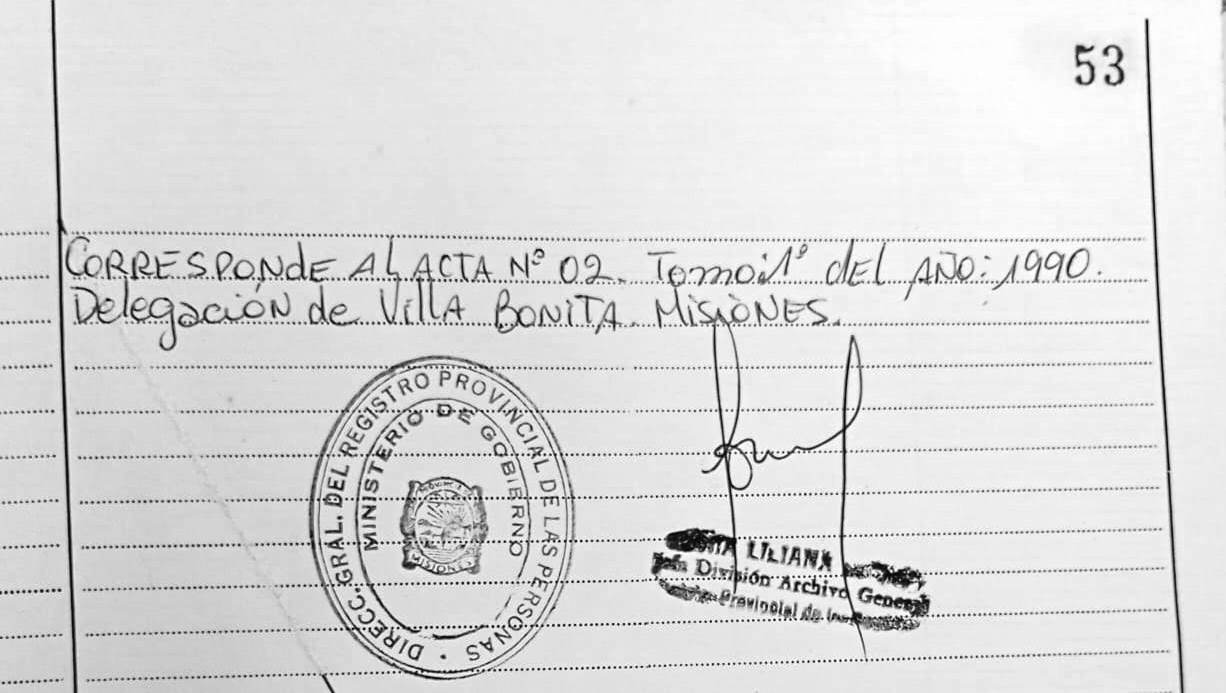 53
CORRESPONDE AL ACTA Nº 02. Tomo: 1º DEL AÑO: 1990.
Delegación de Villa BONITA. MISIONES.
DIRECC. GRAL. DEL REGISTRO PROVINCIAL DE LAS PERSONAS
MINISTERIO DE GOBIERNO
MISIONES
LILIANA
División Archivo General
Provincial de las